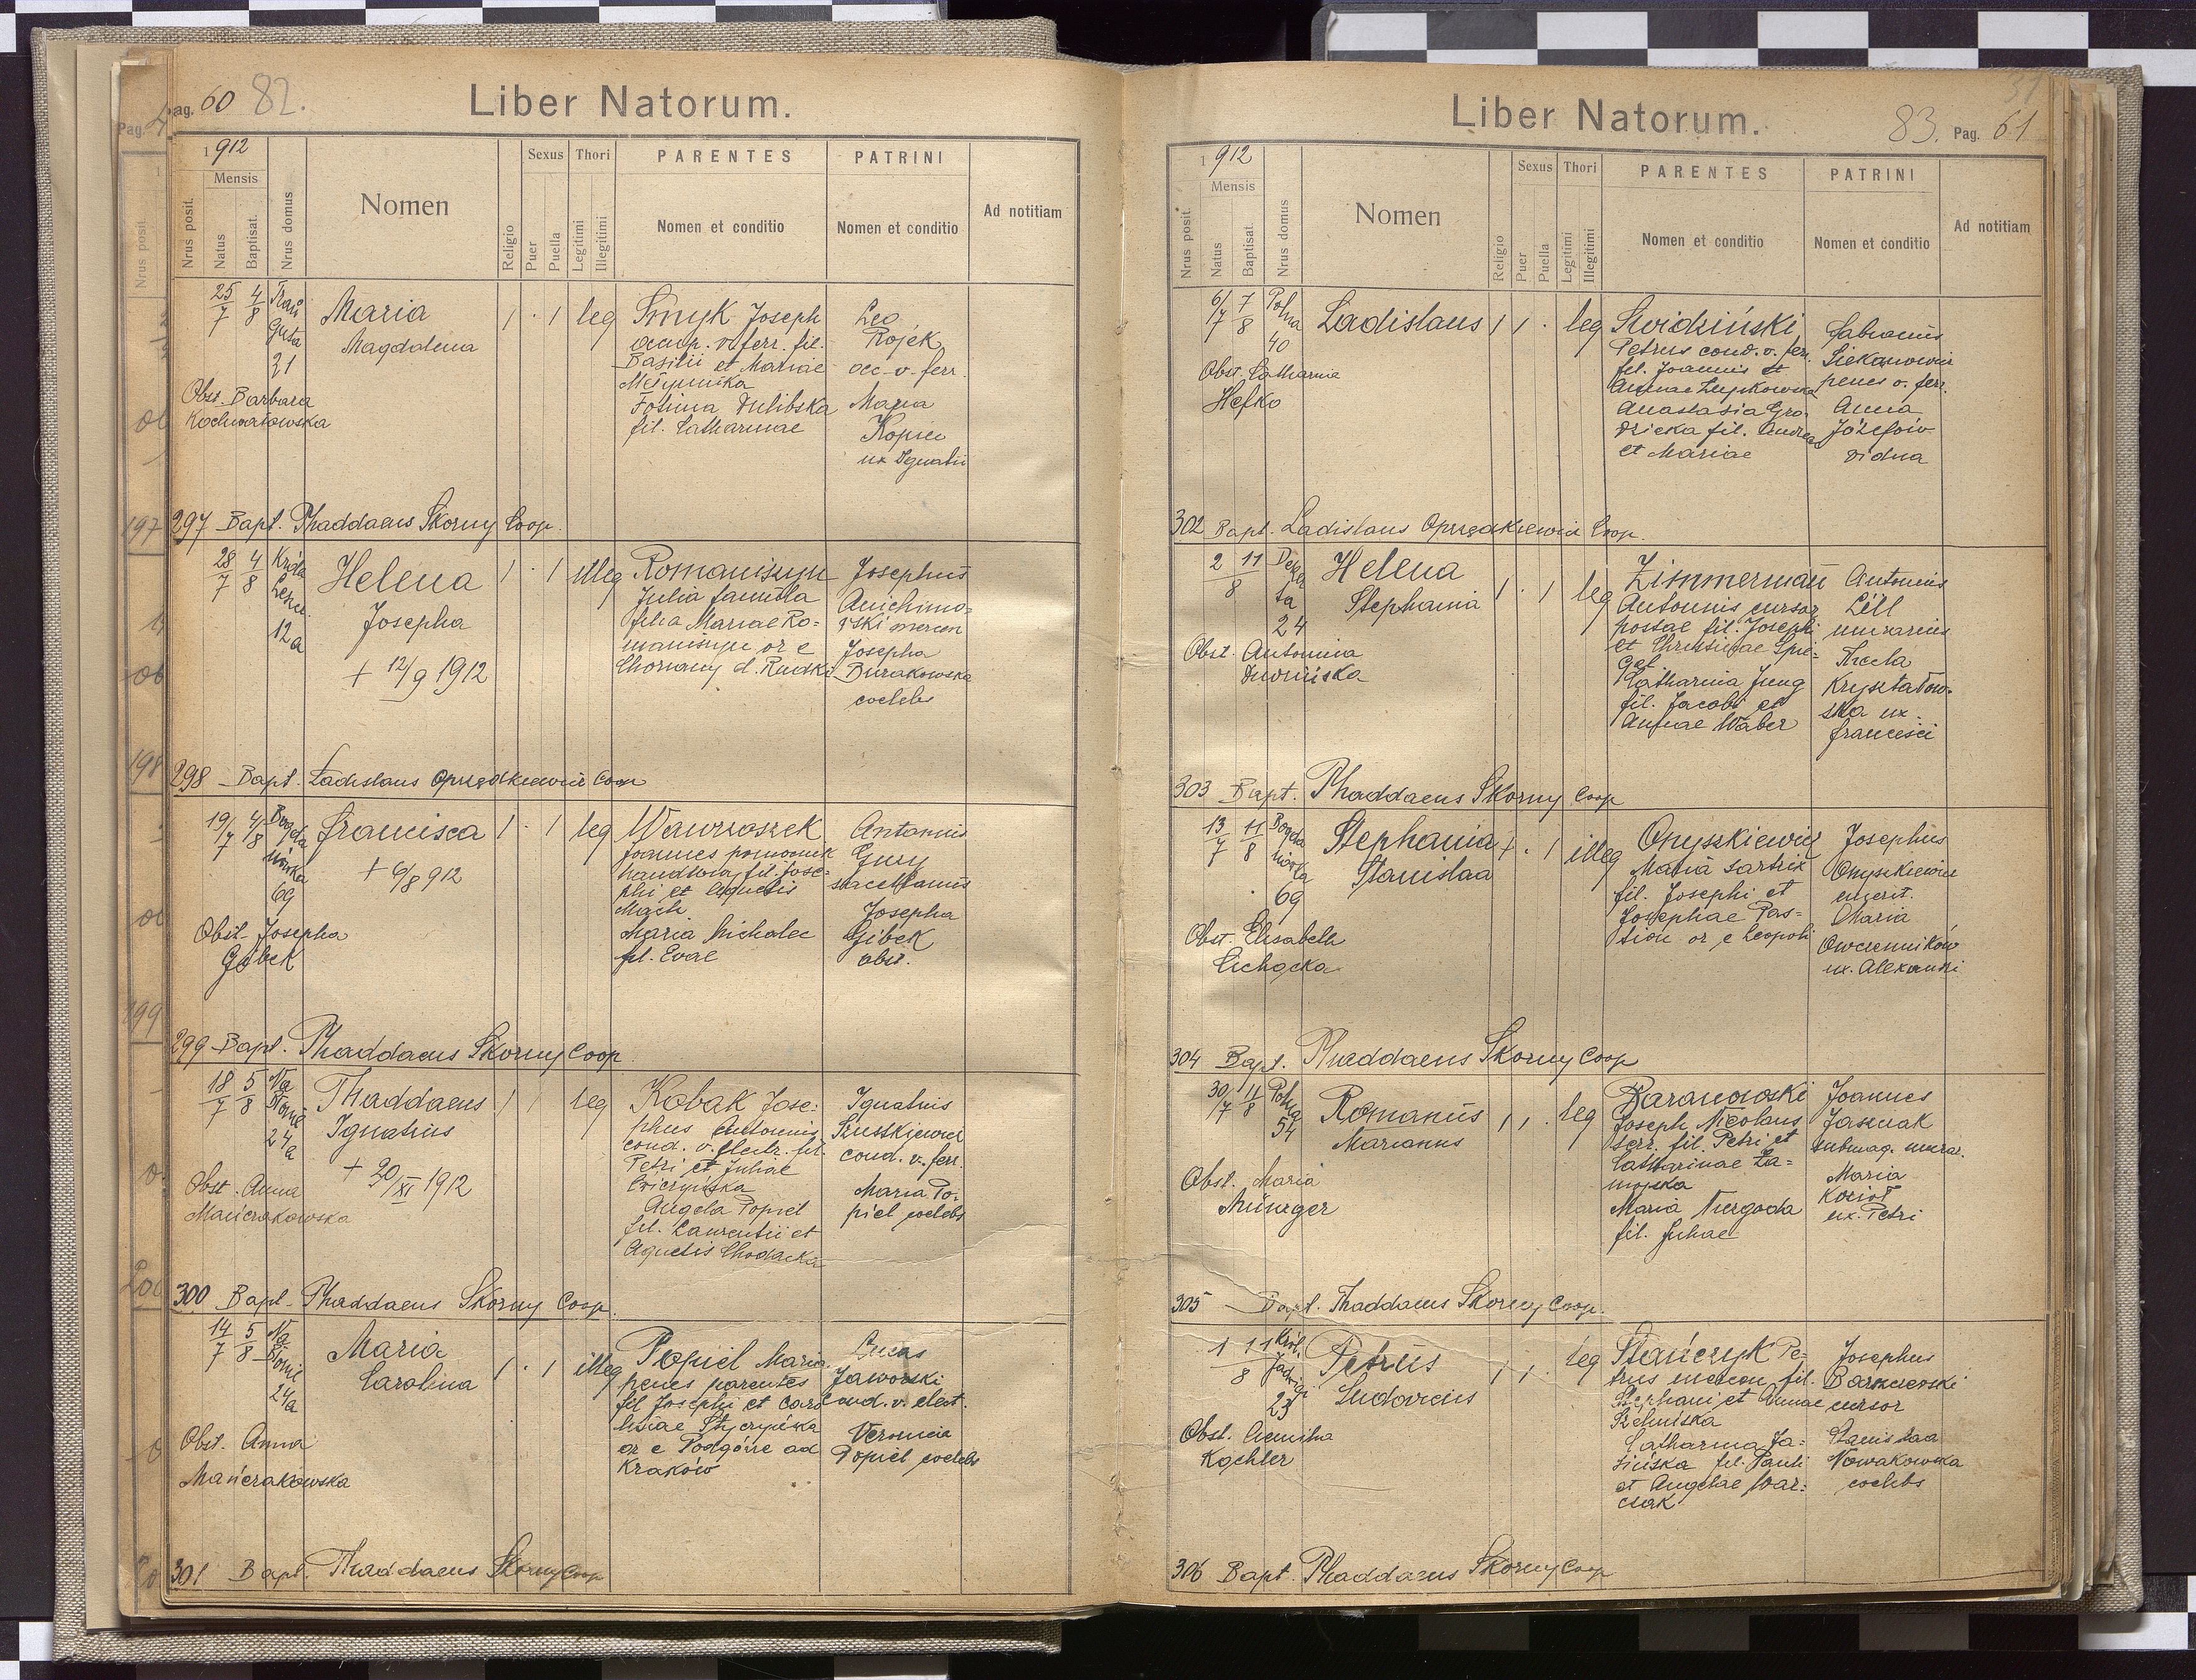 Pag. 60 82.
Liber Natorum.
1912
Mensis
Nrus posit.
Natus
Baptisat.
Nrus domus
Nomen
Religio
Sexus
Puer
Puella
Thori
Legitimi
Illegitimi
PARENTES
Nomen et conditio
PATRINI
Nomen et conditio
Ad notitiam
25/7 4/8
21
Maria
Magdalena
1 · 1 leg
Smyk Joseph
occup. v. ferr. fil.
Basilii et Mariae
Fotina Dulibska
fil. Catharinae
Leo
Rojek
occ. v. ferr.
Maria
Kopeu
ux Ignatii
Obst. Barbara
Kochnatowska
297 Bapt. Thaddaeus Skorny Coop.
28/7 4/8
12a
Helena
Josepha
+ 12/9 1912
1 · 1 illeg
Romaniszyn
Julia famula
filia Mariae Ro=
maniszyn or e
d. Rudki
Josephus
Anichimo=
wski mercen
Josepha
Burakowska
coelebs
298 Bapt. Ladislaus Oprzędkiewicz Coop
19/7 4/8
Bogda
nówka
69
Francisca
+ 6/8 912
1 · 1 leg
Wawrzaszek
Joannes pomocnik
handlowy fil. Jose=
phi et Agnetis
Mach
Maria Michalec
fil. Evae
Antonius
Guzy
Josepha
Gibek
obst.
Obst. Josepha
Gibek
299 Bapt. Thaddaeus Skorny Coop
18/7 5/8
Na
Błonie
24a
Thaddaeus
Ignatius
+ 20/XI 1912
1 1 leg
Kobak Jose=
phus Antonius
cond. v. electr. fil.
Petri et Juliae
Angela Popiel
fil. Laurentii et
Agnetis Chodacka
Ignatius
Szustkiewicz
cond. v. ferr.
Maria Po=
piel coelebs
Obst. Anna
Mańczakowska
300 Bapt. Thaddaeus Skorny Coop.
14/7 5/8
Na
Błonie
24a
Maria
Carolina
1 · 1 illeg
Popiel Maria
penes parentes
fil Josephi et Caro
linae
or e Podgórze ad
Kraków
Lucas
Jaworski
cond. v. elect.
Veronica
Popiel coelebs
Obst. Anna
Mańczakowska
301 Bapt. Thaddaeus Skorny Coop
Liber Natorum.
83. Pag. 61
1912
Mensis
Nrus posit.
Natus
Baptisat.
Nrus domus
Nomen
Religio
Sexus
Puer
Puella
Thori
Legitimi
Illegitimi
PARENTES
Nomen et conditio
PATRINI
Nomen et conditio
Ad notitiam
6/7 7/8
Polna
40
Ladislaus
1 1 · leg
Swidziński
Petrus cond. v. ferr.
fil. Joannis et
Annae Zupkowska
Anastasia Gro
dzicka fil. Andreae
et Mariae
Fabianus
Siekanowicz
penes v. ferr.
Anna
Józefów
vidua
Obst. Catharina
Hefko
302 Bapt. Ladislaus Oprzędkiewicz Coop.
2/8 11
Deker
ta
24
Helena
Stephania
1 · 1 leg
Zimmerman
Antonius cursor
postae fil. Josephi
et Christinae Spie=
gel
Catharina Jung
fil. Jacobi et
Annae Waber
Antonius
Lill
murarius
Thecla
Kryształow=
ska ux.
Francisci
Obst. Antonina
303 Bapt. Thaddaeus Skorny Coop
13/7 11/8
Bogda
nówka
69
Stephania
Stanislaa
1 · 1 illeg
Onyszkiewicz
Maria sartrix
fil. Josephi et
Josephae Pas=
tion or e Leopoli
Josephus
Onyszkiewicz
emerit.
Maria
Owczenników
ux. Alexandri
Obst. Elisabeth
Cichocka
304 Bapt. Thaddaeus Skorny Coop
30/7 11/8
Polna
54
Romanus
Marianus
1 1 · leg
Baranowski
Joseph Nicolaus
serr. fil. Petri et
Catharinae Za=
mojska
Maria Niergoda
fil. Juliae
Joannes
Jasznak
submag. murar.
Maria
Kozioł
ux. Petri
Obst. Maria
Münzger
305 Bapt. Thaddaeus Skorny Coop.
1/8 11
Król.
Jadwigi
23
Petrus
Ludovicus
1 1 · leg
Stańczyk Pe=
trus mercen. fil.
Stephani et Annae
Catharina Ja=
sińska fil. Pauli
et Angelae War=
czak
Josephus
Barszczewski
cursor
Stanislaa
Nowakowska
coelebs
Obst. Aemilia
Kochler
306 Bapt. Thaddaeus Skorny Coop